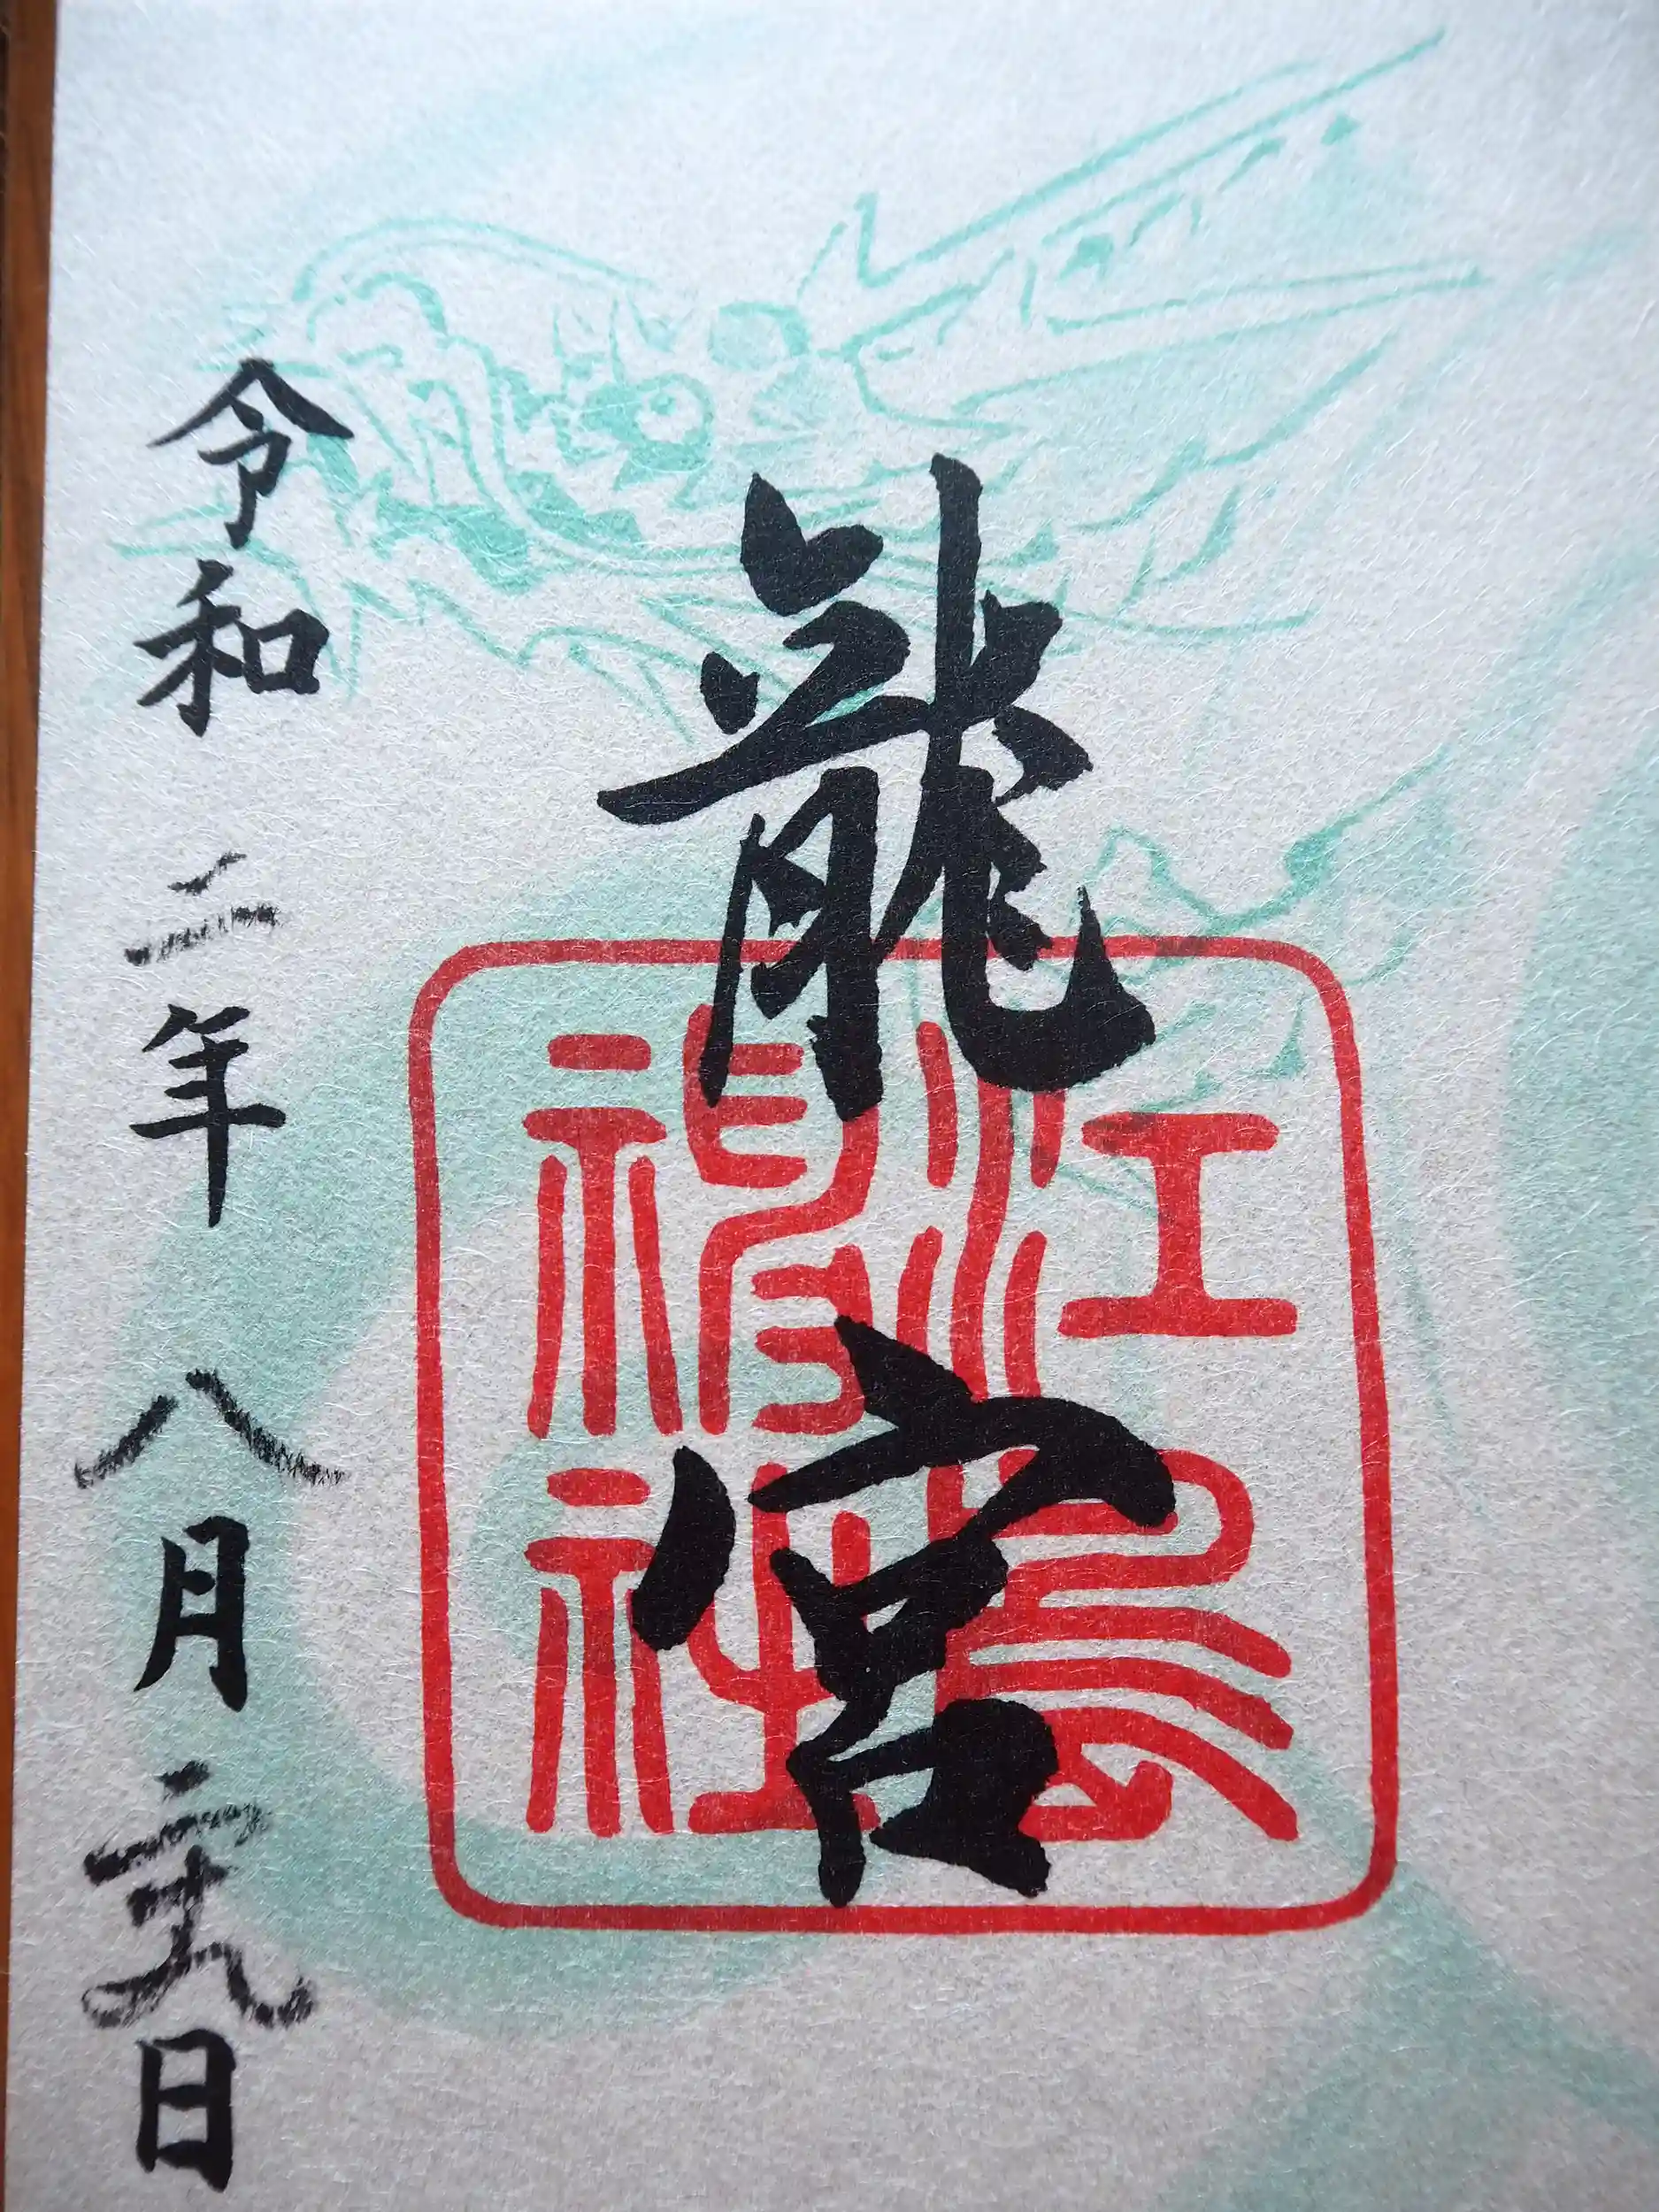 龍宮
江島神社
令和二年八月二十九日